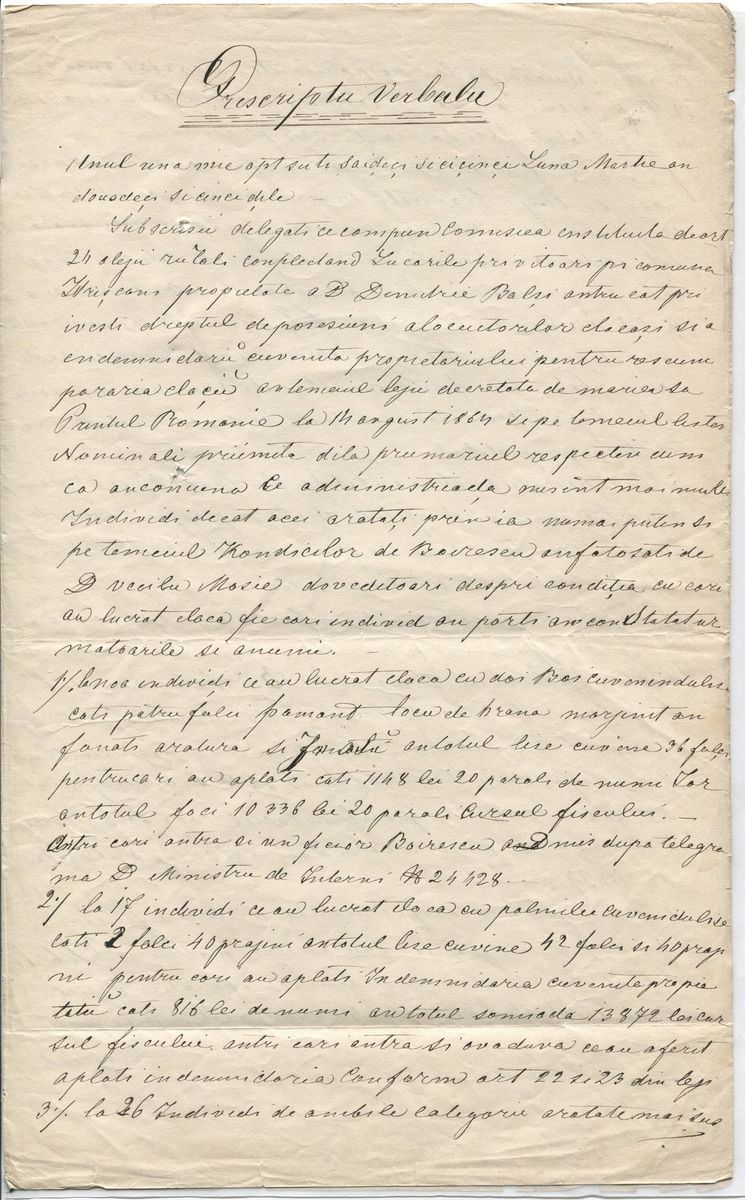 Prescriptu Verbalu
Anul una mie opt sute saideci si cicinci Luna Martie an
douodeci si cinci dile
Subscrisii delegati ce compun Comisiea enstituita de art
24 a legii rurali conplectand Lucorile privitoari pi comuna
Hrișcani propietate a D Dimitrie Balși antru cat pri
ivesti dreptul de posesiuni a locuitorilor clacași si a
endemnidarii cuvenita propietariului pentru rescum
pararia clacii an temeiul legii decretata de mariea sa
Printul Romanie la 14 august 1864 si pe temeiul listei
Nominali priimita dila primariul respectiv cum
ca an comuna ce administreada nu sint mai multi
Individi decat acei aratați prin ea numai putin si
pe temeiul Kondicilor de Boirescu anfatosati de
D vechilu Mosie doveditoari despri condiția cu cari
au lucrat claca fie cari individ au parti am constatat ur
matoarile si anumi. —
1./. la noa individi ce au lucrat claca cu doi Boi cuvenindulise
cati pătru falci pamant locu de hrana marginit an
fanati aratura si Imaslu antotul lise cuvine 36 falci
pentru cari au aplati cati 1148 lei 20 parali de numi Iar
antotul faci 10336 lei 20 parali Cursul fiscului. —
Antri cari antra si un ficior Boirescu admis dupa telegra
ma D Ministru de Interni № 24428. —
2./. la 17 individi ce au lucrat claca cu palmile cuvenidulise
cati 2 falci 40 prajini antotul lise cuvine 42 falci si 40 praji
ni pentru cari au aplati Indemnidaria cuvenita propie
tatii cati 816 lei de numi antotul somioda 13872 lei cur
sul fiscului. antri cari antra si o vaduva ce au aferit
aplati indemnidaria Conform art 22 si 23 din legi
3./. la 26 Individi de ambile categorii aratate mai sus